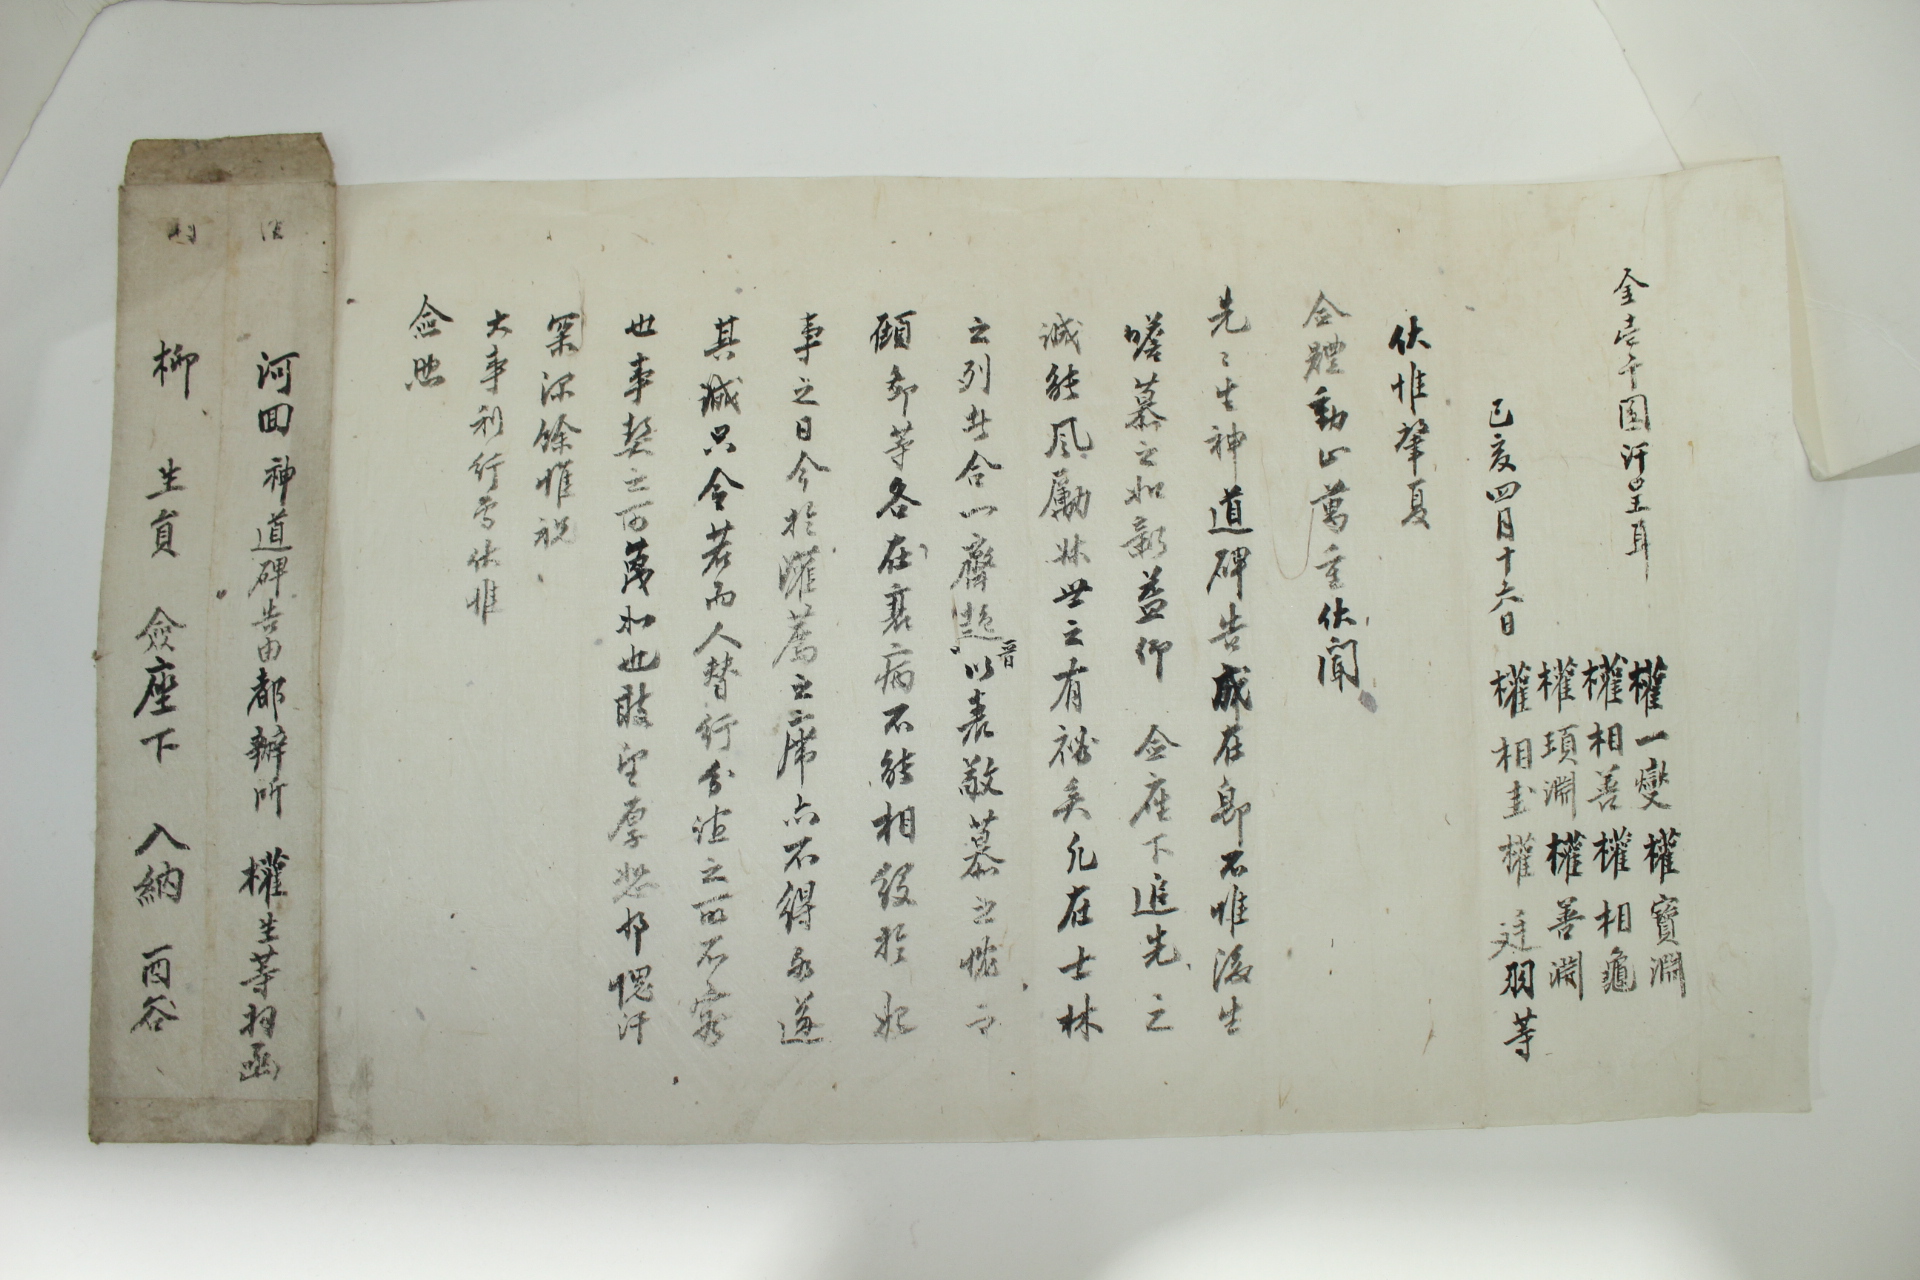 權一燮 權寶淵
金壱千圓汗呈耳
權相善 權相龜
權頊淵 權善淵
己亥四月十六日
權相圭 權廷羽等
伏惟肇夏
僉體動止萬重伏聞
先先生神道碑告成在卽不惟後生
嗟慕之如新益仰 僉座下追先之
誠能風勵妹世之有裕矣凡在士林
之列者合一齊趍晋以表敬慕之忱而
顧鄙等各在衰病不能相役於
事之日今於灌薦之席亦不得另遂
其誠只令若而人替行分誼之所不容
也事契之可蔑如也敢望厚恕耶愧汗
深餘惟祝
大事利行焉伏惟
僉照
河回 神道碑告由都辦所 權生等拜函
柳 生員 僉座下 入納 酉谷